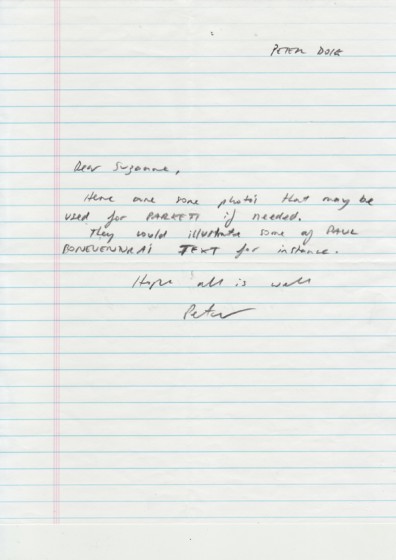 PETER DOIG
Dear Suzanne,
Here are some photo's that may be
used for PARKETT if needed.
They could illustrate some of PAUL
BONEVENTURA'S TEXT for instance.
Hope all is well
Peter